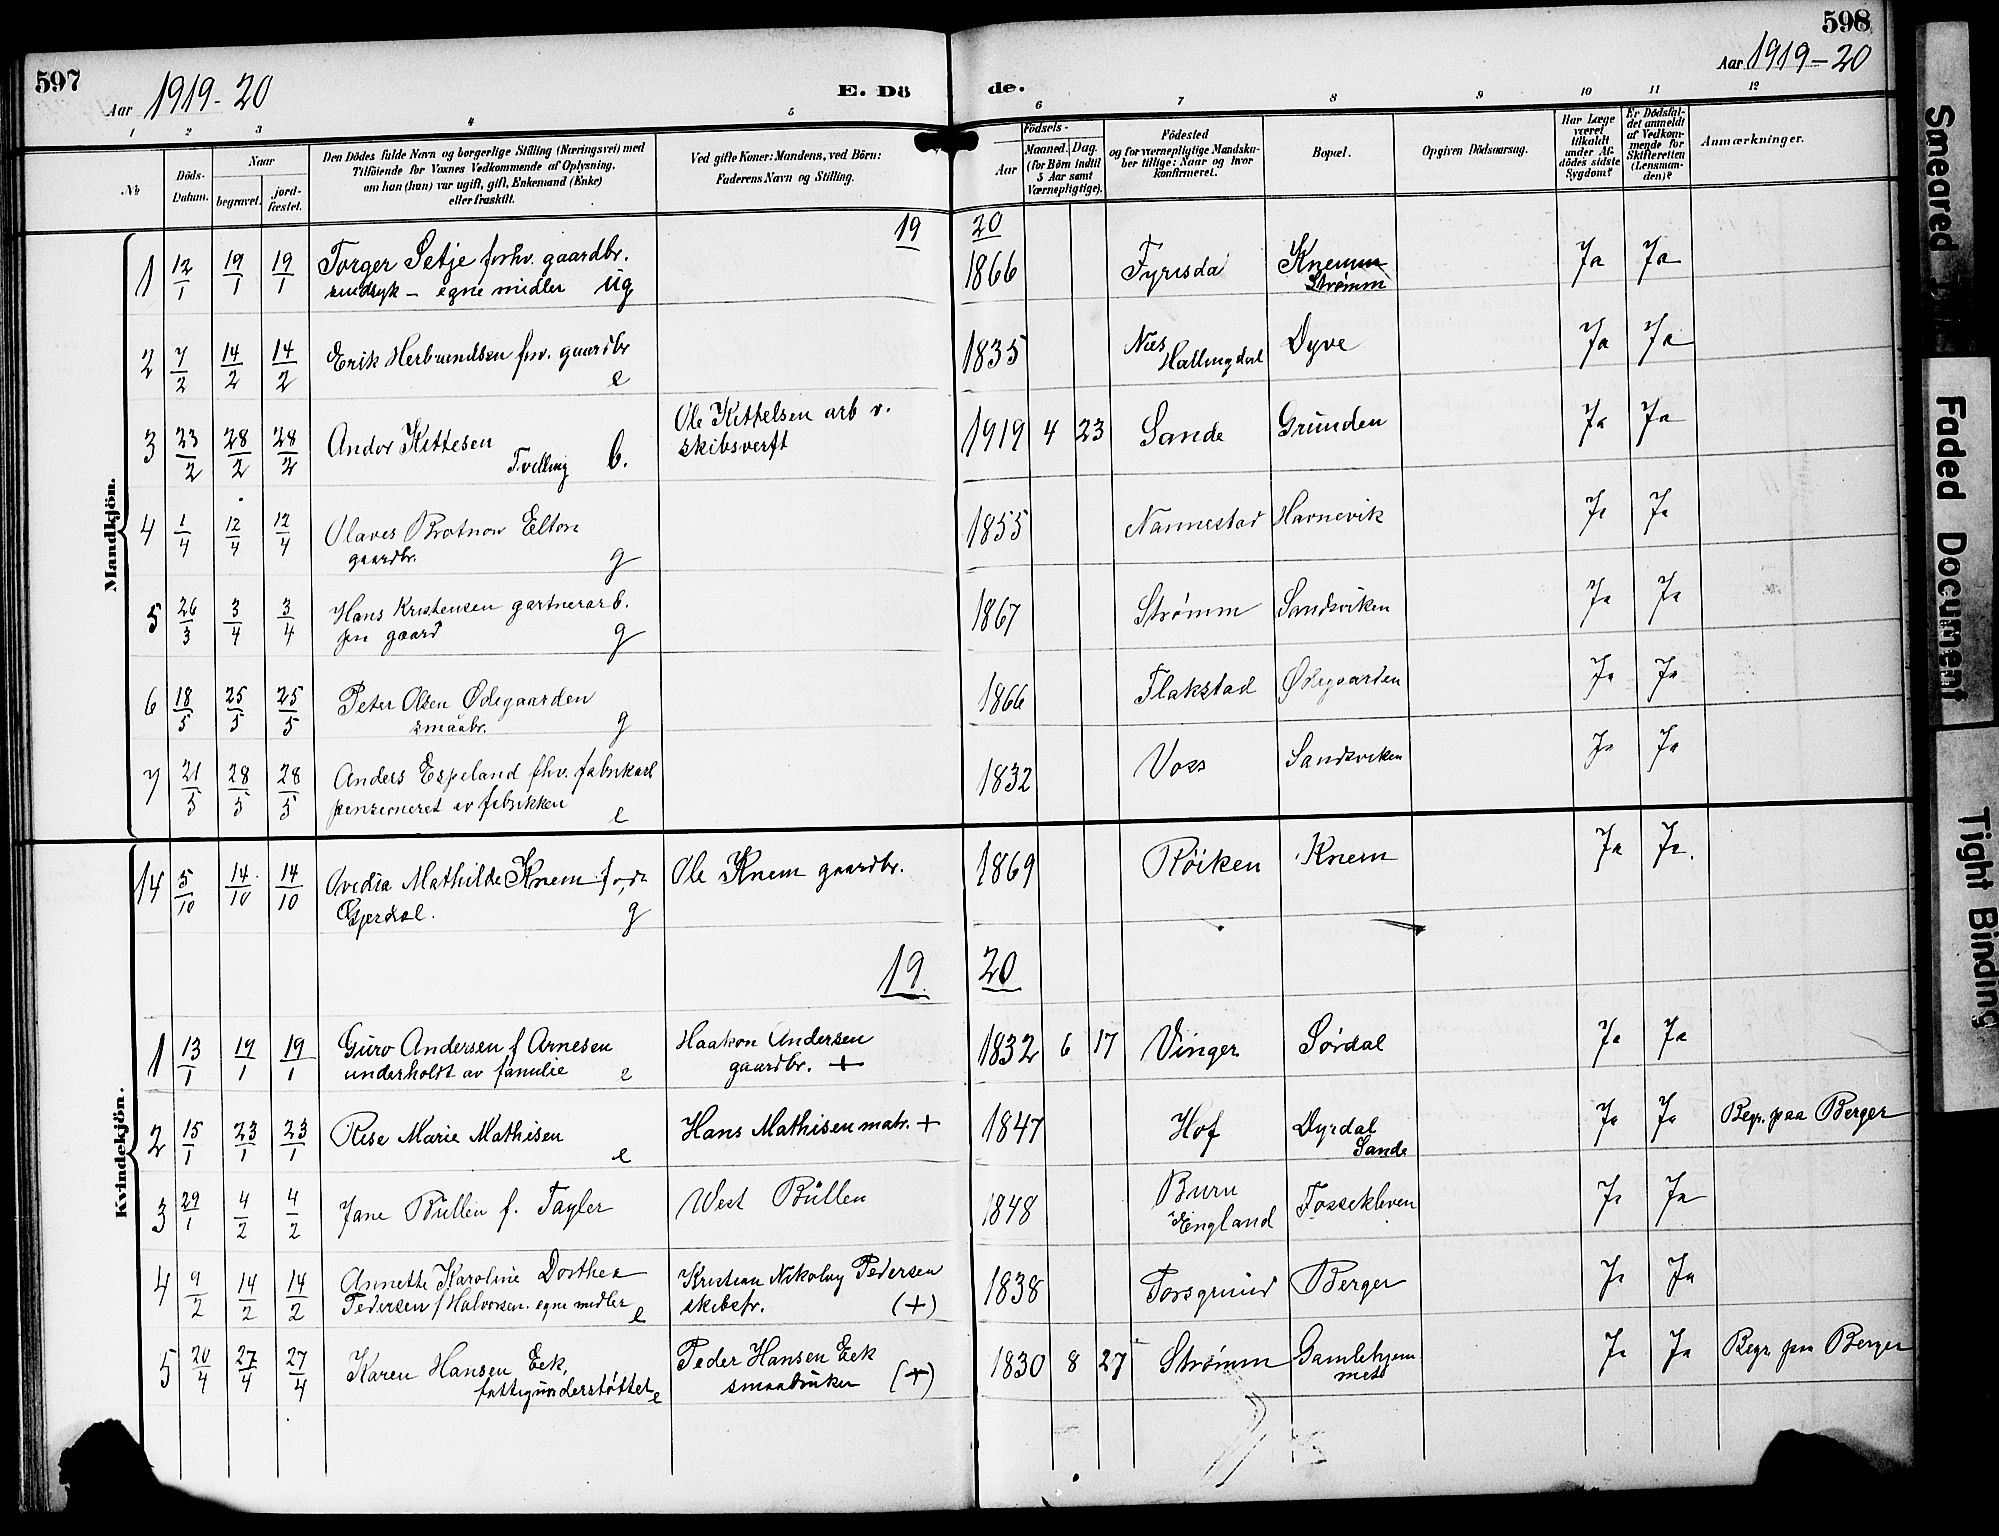 597
598
Aar 1919-20
E. Dö
de.
Aar 1919-20
1 2 3 4 5 6 7 8 9 10 11 12
No
Döds-Datum.
Naar
begravet.
jord-fæstet.
Den Dödes fulde Navn og borgerlige Stilling (Næringsvei) med
Tilföiende for Voxnes Vedkommende af Oplysning,
om han (hun) var ugift, gift, Enkemand (Enke)
eller fraskilt.
Ved gifte Koner: Mandens, ved Börn:
Faderens Navn og Stilling.
Födsels-
Aar
Maaned. Dag.
(for Börn indtil
3 Aar samt
Værnepligtige).
Födested
og for værnepligtige Mandska-
ber tillige: Naar og hvor
konfirmeret.
Bopæl.
Opgiven Dödsaarsag.
Har Læge
været
tilkaldt
under Af-
dödes sidste
Sygdom?
Er Dödsfal-
det anmeldt
af Vedkom-
mende for
Skifteretten
(Lensman-
den)?
Anmærkninger.
Mandkjön.
19 20
1 12/1 19/1 19/1 Torger Setje forhv. gaardbr. 1866 Fyrisda Knemm Ja Ja
sindsyk - egne midler ug Strømm
2 7/2 14/2 14/2 Erik Herbrandsen fhv. gaardbr e 1835 Næs Hallingdal Dyve Ja Ja
3 23/2 28/2 28/2 Andor Kittesen Ole Kittelsen arb v. 1919 4 23 Sande Grunden Ja Ja
Tvilling b. skibsverft
4 1/4 12/4 12/4 Olaves Brotnow Elton 1855 Nannestad Havnevik Ja Ja
gaardbr. g
5 26/3 3/4 3/4 Hans Kristensen gartnerarb. 1867 Strømm Sandsviken Ja Ja
paa gaard g
6 18/5 25/5 25/5 Peter Olsen Ødegaarden 1866 Flakstad Ødegaarden Ja Ja
smaabr. g
7 21/5 28/5 28/5 Anders Espeland fhv. fabrikarb 1832 Voss Sandsviken Ja Ja
pensioneret av fabrikken e
Kvindekjön.
14 5/10 14/10 14/10 Ovedia Mathilde Knem født Ole Knem gaardbr. 1869 Røiken Knem Ja Ja.
Gjerdal. g
19 20
1 13/1 19/1 19/1 Guro Andersen f Arnesen Haakon Andersen 1832 6 17 Vinger Sørdal Ja Ja
underholdt av familie e gaardbr. +
2 15/1 23/1 23/1 Rise Marie Mathisen e Hans Mathisen matr. + 1847 Hof Dyrdal Sande Ja Ja Begr. paa Berger
3 29/1 4/2 4/2 Jane Büllen f. Tayler West Büllen 1848 Burn England Fossekleven Ja Ja
4 9/2 14/2 14/2 Annette Karoline Dorthea Kristian Nikolay Pedersen 1838 Porsgrund Berger Ja Ja
Pedersen f Halvorsen. egne midler e skibsfr. (+)
5 20/4 27/4 27/4 Karen Hansen Eek, Peder Hansen Eek 1830 8 27 Strømm Gamlehjemmet Ja Ja Begr. paa Berger
fattigunderstøttet e smaabruker (+)
Smeared
Faded Document
Tight Binding